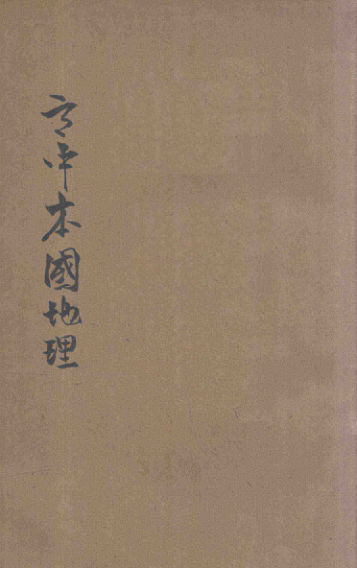 高中本國地理